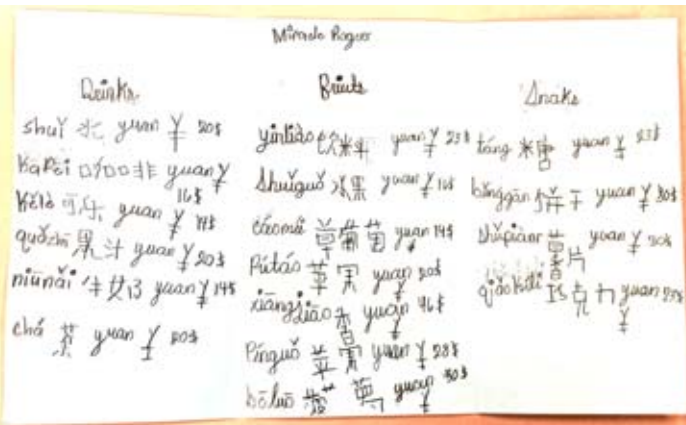 Drinks
shuǐ 水 yuan ¥ 20$
kāfēi 咖啡 yuan ¥ 16$
kělè 可乐 yuan ¥ 14$
quǒzhī 果汁 yuan ¥ 20$
niúnǎi 牛奶 yuan ¥ 14$
chá 茶 yuan ¥ 20$
Fruits
yǐnliào 饮料 yuan ¥ 23$
Shuǐguǒ 水果 yuan ¥ 16$
cǎoméi 草莓 yuan 14$
Pútáo yuan 20$
xiāngjiāo 香 yuan ¥ 46$
Píngguǒ yuan ¥ 28$
bōluō yuan ¥ 30$
Snaks
táng 糖 yuan ¥ 23$
bǐnggān 饼干 yuan ¥ 30$
shǔpiànr 薯片 yuan ¥ 30$
qiǎokèlì 巧克力 yuan 23$ ¥